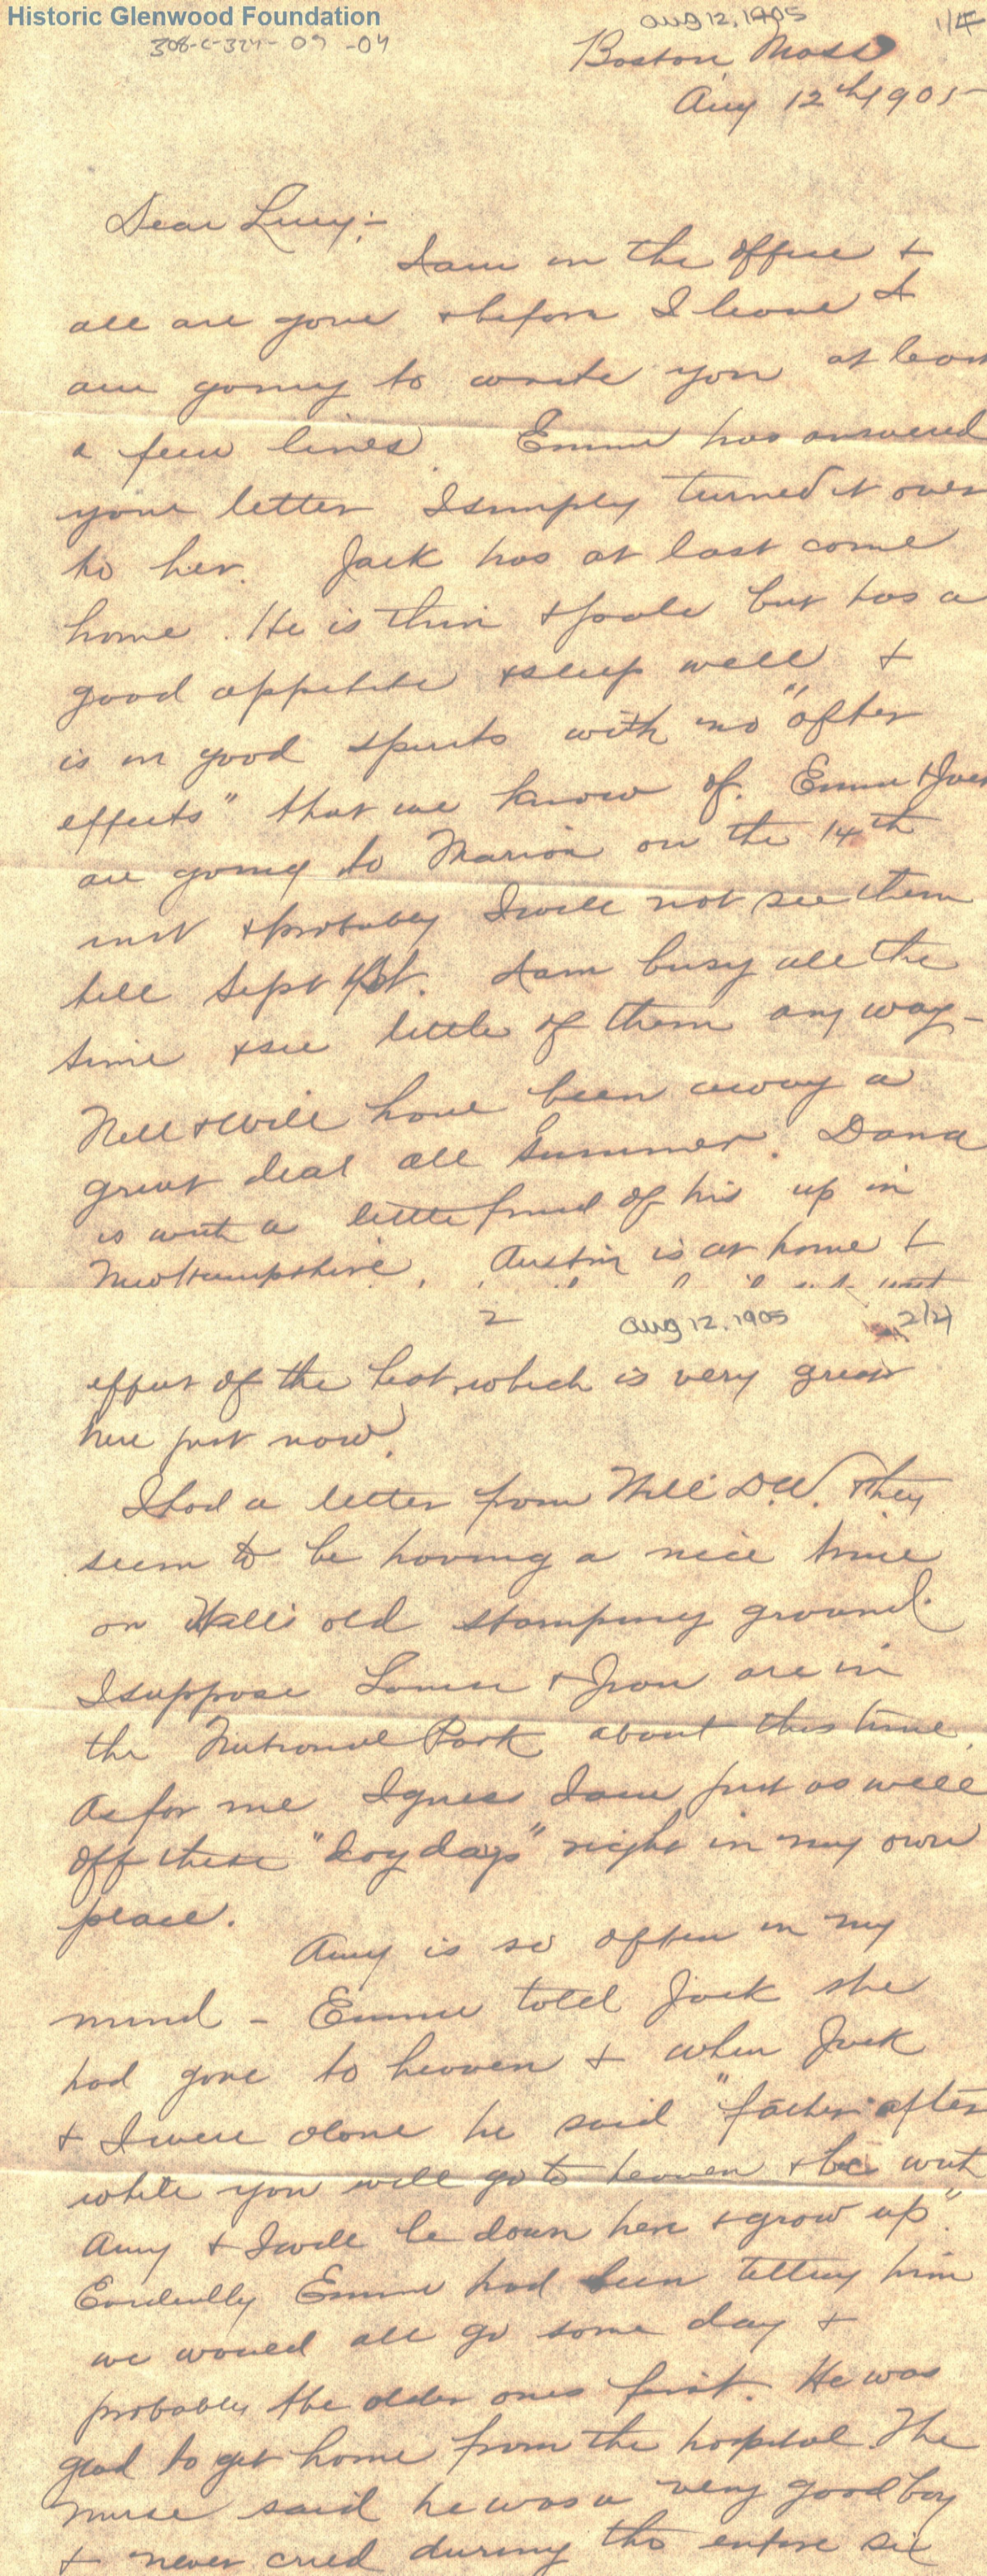 Historic Glenwood Foundation
308-C-324-09-04
Aug 12, 1905
1/4
Boston, Mass
Aug 12th 1905
Dear Lucy:-
I am in the office +
all are gone + before I leave I
am going to write you at least
a few lines. Emme has answered
your letter I simply turned it over
to her. Jack has at last come
home. He is thin + pale but has a
good appetite + sleep well +
is in good spirits with no "after
effects" that we know of. Emme + Jack
are going to Marion on the 14th
inst + probably I will not see them
till Sept 1st. I am busy all the
time + see little of them any way -
Nell + Will have been away a
great deal all Summer. Dana
is with a little friend of his up in
New Hampshire. Austin is at home +
2
Aug 12, 1905
2/4
effect of the heat, which is very great
here just now.
I had a letter from Will D.W. + they
seem to be having a nice time
on Will's old stomping ground.
I suppose Louise + are in
the National Park about this time.
As for me I guess I am just as well
off these "dog days" right in my own
place.
Amy is so often in my
mind - Emme told Jack she
had gone to heaven + when Jack
+ I were alone he said "father after
while you will go to heaven + be with
Amy + I will be down here + grow up".
Evidently Emme had been telling him
we would all go some day +
probably the older ones first. He was
glad to get home from the hospital. The
nurse said he was a very good boy
+ never cried during the entire six